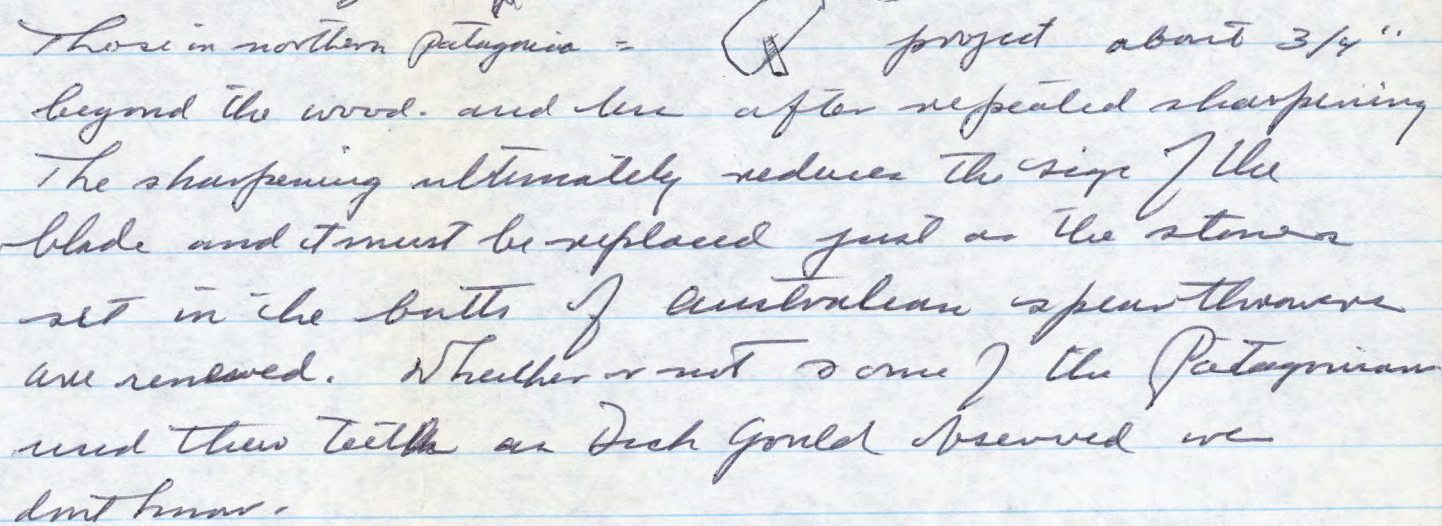 Those in northern Patagonia = project about 3/4"
beyond the wood. and less after repeated sharpening
The sharpening ultimately reduces the size of the
blade and it must be replaced just as the stones
set in the butts of Australian spear throwers
are renewed. Whether or not some of the Patagonians
used their teeth as Dick Gould observed we
dont know.